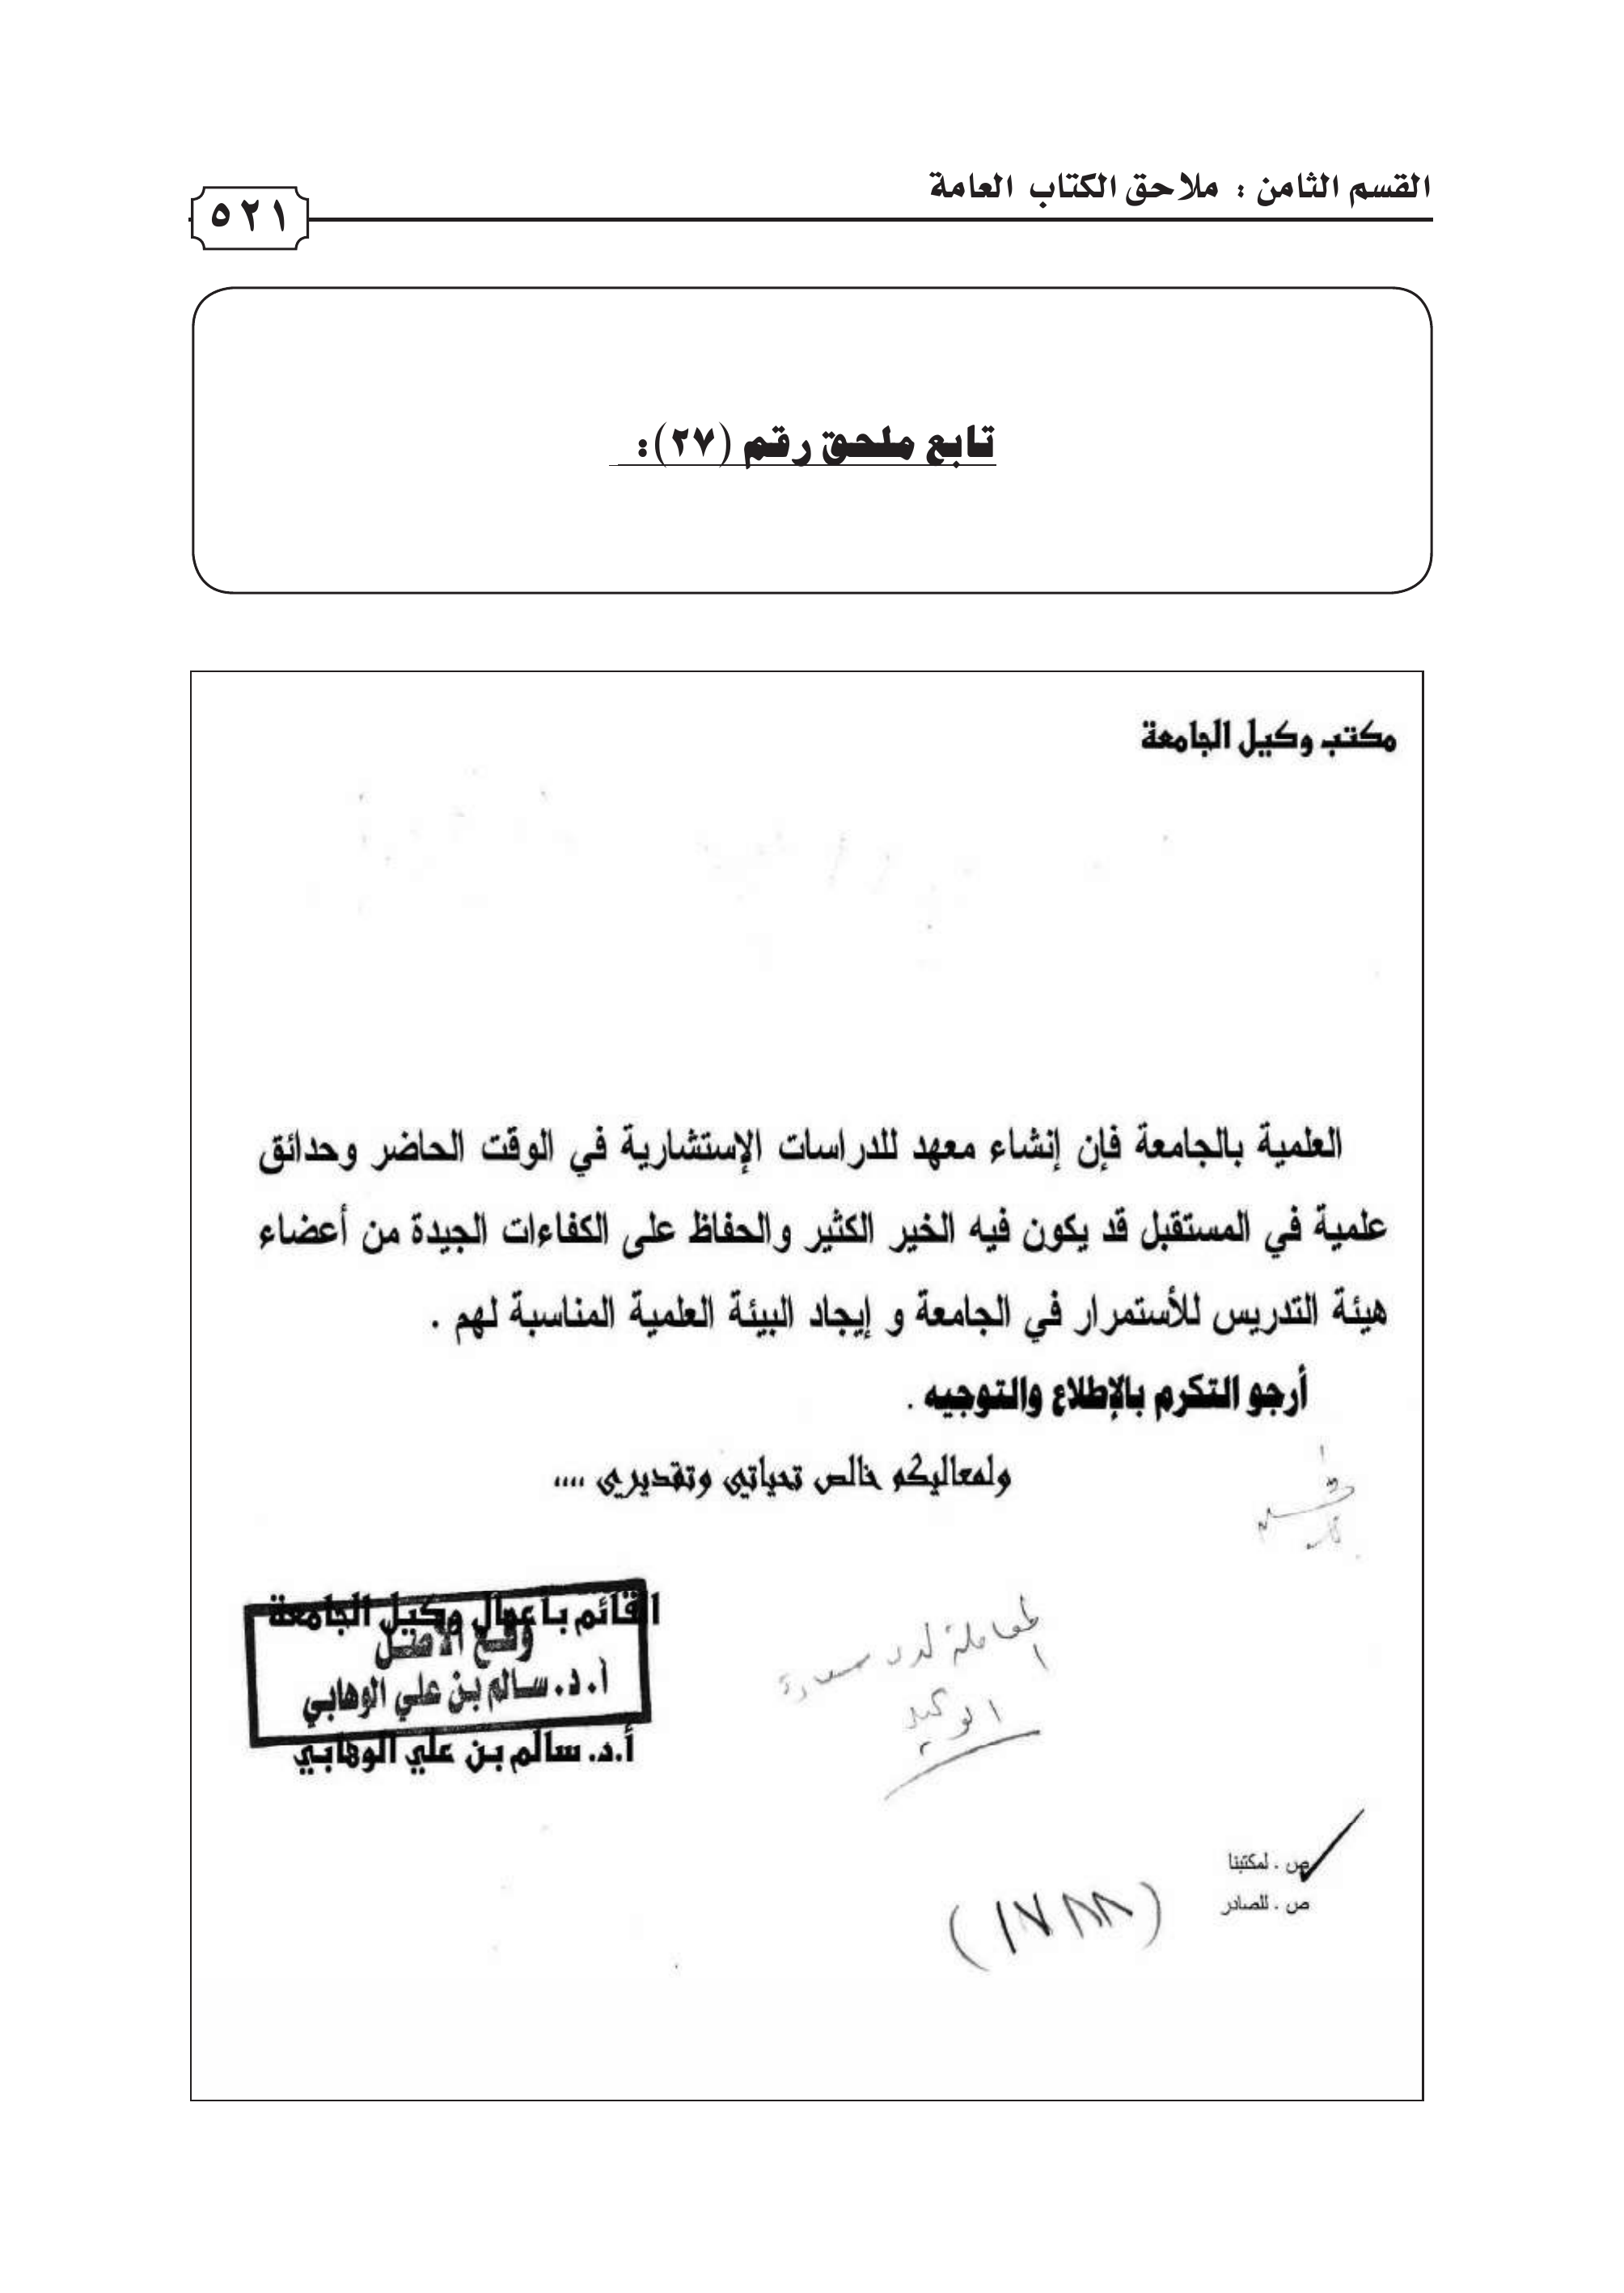 القسم الثامن : ملاحق الكتاب العامة
٥٢١
تابع ملحق رقم (٢٧):
مكتب وكيل الجامعة
العلمية بالجامعة فإن إنشاء معهد للدراسات الإستشارية في الوقت الحاضر وحدائق
علمية في المستقبل قد يكون فيه الخير الكثير والحفاظ على الكفاءات الجيدة من أعضاء
هيئة التدريس للأستمرار في الجامعة و إيجاد البيئة العلمية المناسبة لهم .
أرجو التكرم بالإطلاع والتوجيه .
ولمعاليكم خالص تحياتي وتقديري ....
القائم بأعمال وكيل الجامعة
وقع الأصل
أ.د. سالم بن علي الوهابي
أ.د. سالم بن علي الوهابي
المعاملة لدى سعادة
الوكيل
ص . لمكتبنا
ص . للصادر
(١٧٨٨)